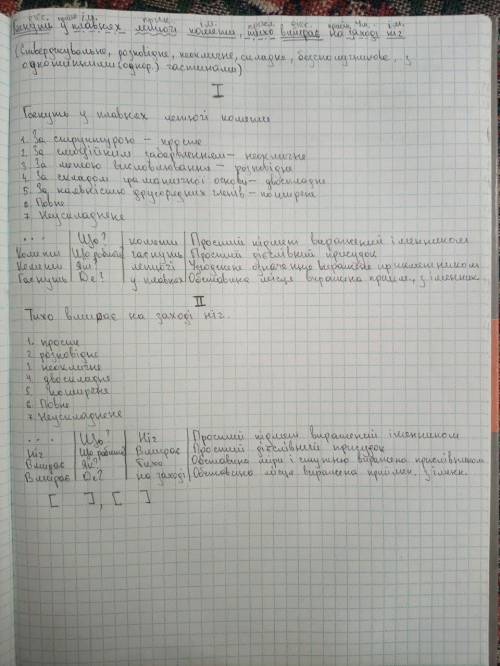 дієс. прийм. ім. прикм. ім. присл. дієс. прийм. ім. ім.
Гаснуть у плавнях летючі комети, тихо вмирає на заході ніг
(Стверджувальне, розповідне, неокличне, складне, безсполучникове, з
однотипними (однор.) частинами)
I
Гаснуть у плавнях летючі комети
1. За структурою – просте
2. За емоційним забарвленням – неокличне
3. За метою висловлювання – розповідне
4. За складом граматичної основи – двоскладне
5. За наявністю другорядних членів – поширене
6. Повне
7. Неускладнене
... Що? комети Простий підмет виражений іменником
Комети Що роблять? гаснуть Простий дієслівний присудок
Комети Які? летючі Узгоджене означення виражене прикметником
Гаснуть Де? у плавнях Обставина місця виражена прийм. з іменник.
II
Тихо вмирає на заході ніг.
1. просте
2. розповідне
3. неокличне
4. двоскладне
5. поширене
6. Повне
7. Неускладнене
... Що? Ніг Простий підмет виражений іменником
Ніг Що робить? Вмирає Простий дієслівний присудок
Вмирає Як? Тихо Обставина міри і ступеню виражена прислівником
Вмирає Де? на заході Обставина місця виражена прийм. з імен.
[ ], [ ]